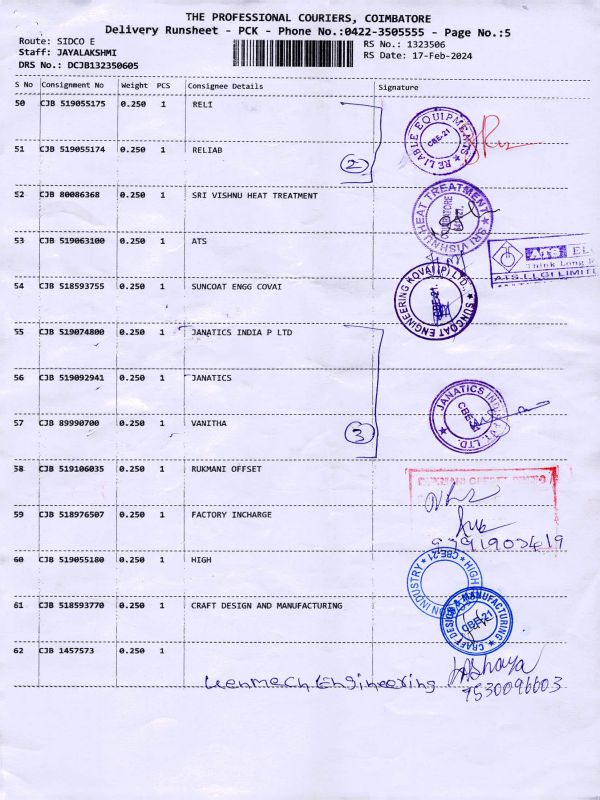 THE PROFESSIONAL COURIERS, COIMBATORE
Delivery Runsheet - PCK - Phone No.:0422-3505555 - Page No.:5
Route: SIDCO E
RS No.: 1323506
Staff: JAYALAKSHMI
RS Date: 17-Feb-2024
DRS No.: DCJB132350605
S No Consignment No Weight PCS Consignee Details Signature
50 CJB 519055175 0.250 1 RELI
RELIABLE EQUIPMENTS ★ CBE-21
51 CJB 519055174 0.250 1 RELIAB
2
52 CJB 80086368 0.250 1 SRI VISHNU HEAT TREATMENT
SRI VISHNU HEAT TREATMENT ★
53 CJB 519063100 0.250 1 ATS
ATS ELGI
Think Long
ATS ELGI LIMIT
54 CJB 518593755 0.250 1 SUNCOAT ENGG COVAI
★ SUNCOAT ENGINEERING KOVAI (P) LTD., CBE-21.
55 CJB 519074800 0.250 1 JANATICS INDIA P LTD
56 CJB 519092941 0.250 1 JANATICS
JANATICS INDIA PVT. LTD. ★ CBE-21
57 CJB 89990700 0.250 1 VANITHA
3
58 CJB 519106035 0.250 1 RUKMANI OFFSET
RUKMANI OFFSET
59 CJB 518976507 0.250 1 FACTORY INCHARGE
60 CJB 519055180 0.250 1 HIGH
HIGH INDUSTRY ★ CBE-21 ★
61 CJB 518593770 0.250 1 CRAFT DESIGN AND MANUFACTURING
CRAFT DESIGN & MANUFACTURING ★ CBE-21
62 CJB 1457573 0.250 1
Engineering
7530096603